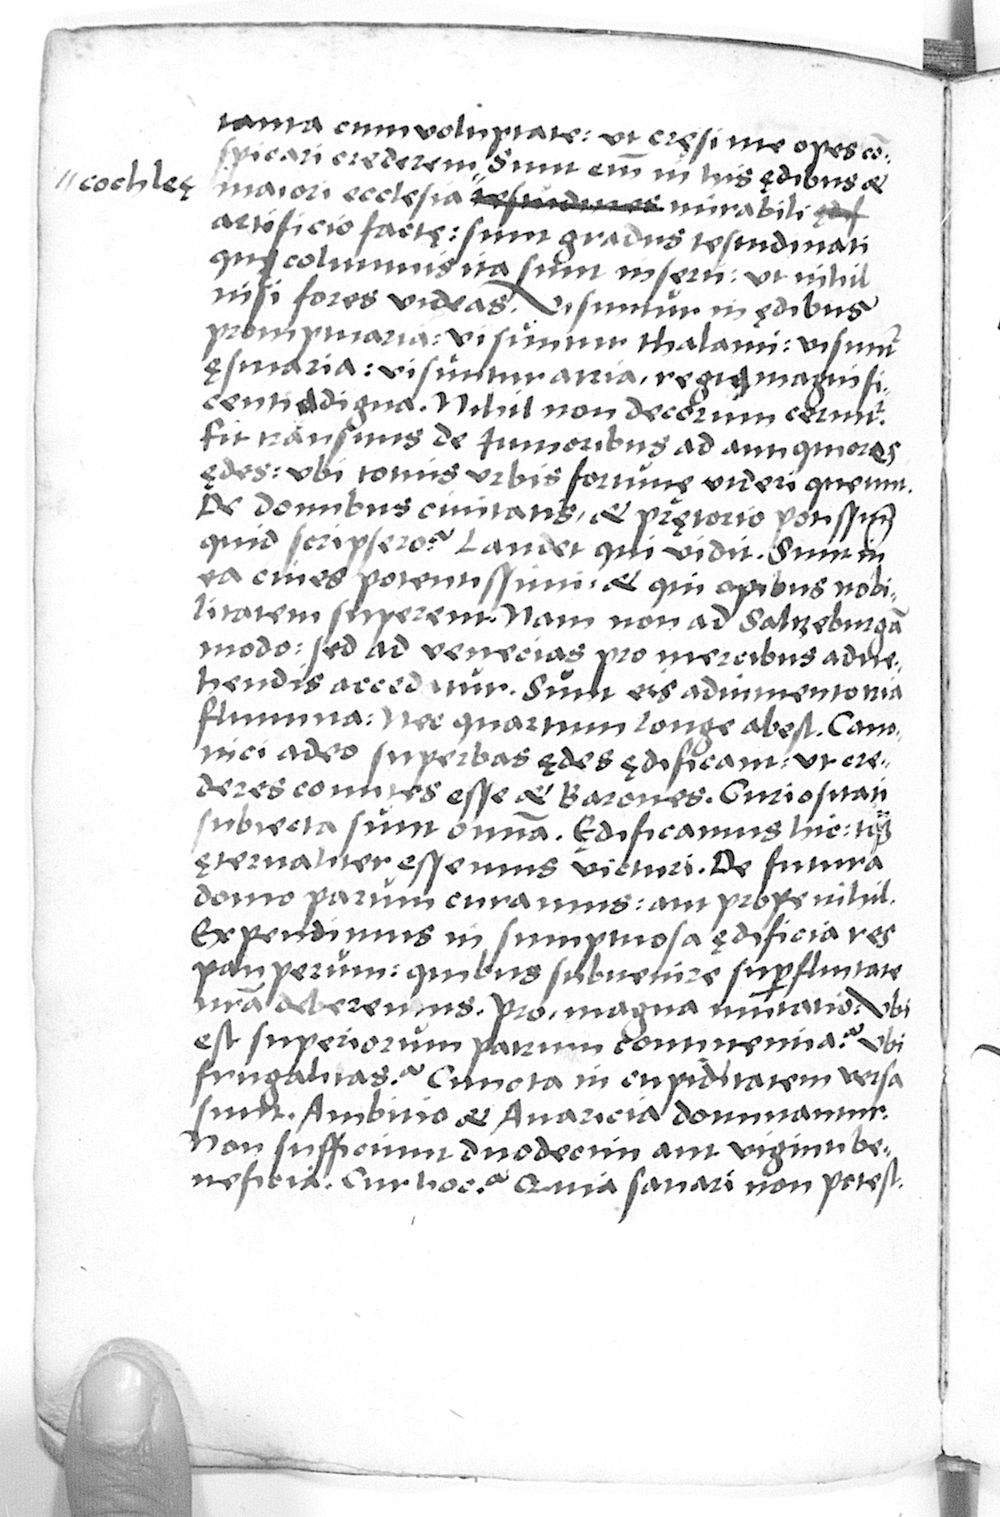 tanta cum voluptate: ut cręsi me opes cō-
spicari crederem. Sunt em̄ in his ędibus &
//cochleę
maiori ecclesia "testudines mirabili ędif
artificio factę: sunt gradus testudinati
qui columnis ita sunt inserti: ut nihil
nisi fores videas. Visuntur in ędibus
promptuaria: visuntur thalami: visunt̄
ęstuaria: visuntur atria, regia magnifi-
centia digna. Nihil non decorum cernit̄.
Fit transitus de Iunioribus ad antiquiores
ędes: ubi totius urbis fortunę videri queunt.
De domibus civitatis, & prętorio potissimū
quid scripsero? Laudet qui vidit. Sunt in
ea cives potentissimi: & qui opibus nobi-
litatem superent. Nam non ad Saltzeburgā
modo: sed ad venecias pro mercibus adve-
hendis acceditur. Sunt eis adiumento tria
flumina: Nec quartum longe abest. Cano-
nici adeo superbas ędes ędificant: ut cre-
deres comites esse & Barones. Curiositati
subiecta sunt omnīa. Edificamus hic: tāq̄
ęternaliter essemus victuri. De futura
domo parum curamus: aut prope nihil.
Expendimus in sumptuosa ędificia res
pauperum: quibus subvenire suꝑfluitate
nrā deberemus. Pro, magna mutatio: Vbi
est superiorum patrum continentia? Vbi
frugalitas? Cuncta in cupiditatem versa
sunt. Ambitio & Avaricia dominantur.
Non sufficiunt duodecim aut viginti be-
neficia. Cur hoc? Quia sanari non potest.